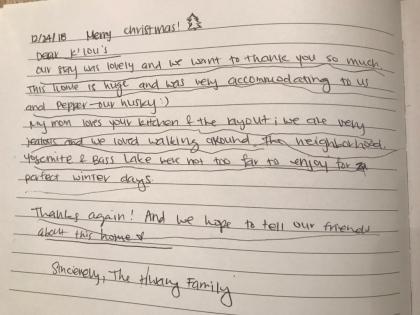 12/24/18 Merry christmas!
Dear K'lou's
our stay was lovely and we want to thank you so much.
This home is huge and was very accommodating to us
and Pepper - our husky :)
My mom loves your kitchen & the layout; we are very
jealous and we loved walking around. The neighborhood.
Yosemite & Bass Lake were not too far to enjoy for
perfect winter days.
Thanks again! And we hope to tell our friends
about this home
Sincerely, The Family